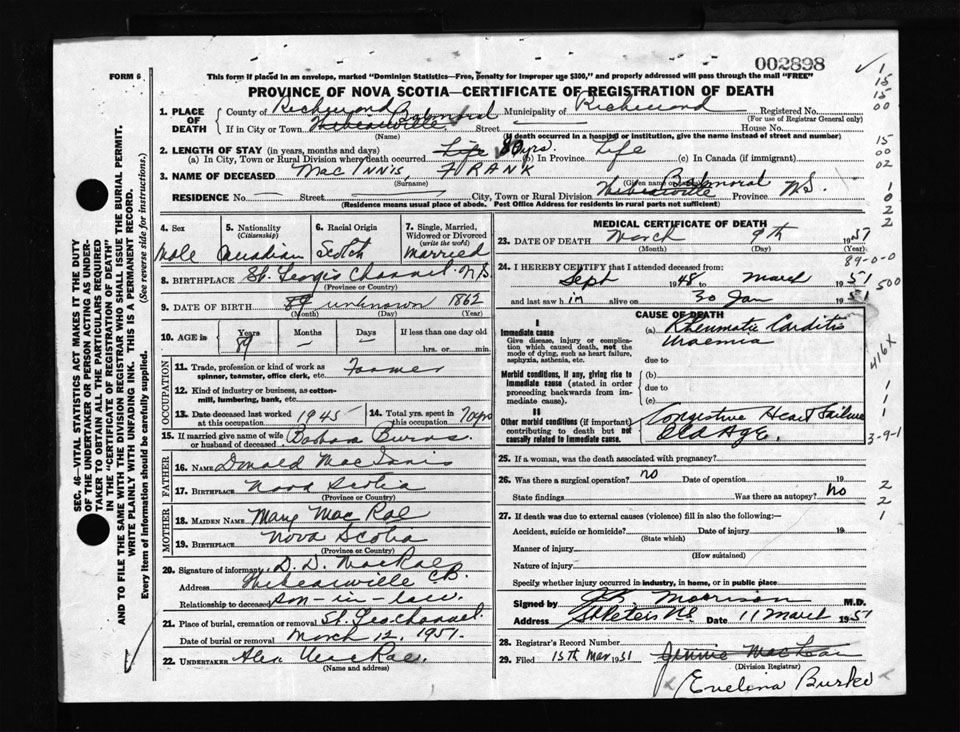 002898
FORM 6
This form if placed in an envelope, marked "Dominion Statistics—Free, penalty for improper use $300," and properly addressed will pass through the mail "FREE"
PROVINCE OF NOVA SCOTIA—CERTIFICATE OF REGISTRATION OF DEATH
1. PLACE OF DEATH
County of Richmond Municipality of Richmond Registered No.
(For use of Registrar General only)
Balmoral
If in City or Town Street House No.
(Name) (If death occurred in a hospital or institution, give the name instead of street and number)
2. LENGTH OF STAY (in years, months and days)
(a) In City, Town or Rural Division where death occurred Life yrs. (b) In Province Life (c) In Canada (if immigrant)
3. NAME OF DECEASED MacInnis, FRANK
(Surname) (Given name
RESIDENCE No Street City, Town or Rural Division Balmoral Province N.S.
(Residence means usual place of abode. Post Office Address for residents in rural parts not sufficient)
4. Sex
Male
5. Nationality
(Citizenship)
Canadian
6. Racial Origin
Scotch
7. Single, Married, Widowed or Divorced
(write the word)
Married
8. BIRTHPLACE St. Georges Channel N.S.
(Province or Country)
9. DATE OF BIRTH unknown 1862
(Month) (Day) (Year)
10. AGE in Years Months Days If less than one day old
89 — — hrs. or min.
OCCUPATION
11. Trade, profession or kind of work as spinner, teamster, office clerk, etc. Farmer
12. Kind of industry or business, as cotton-mill, lumbering, bank, etc.
13. Date deceased last worked at this occupation 1945
14. Total yrs. spent in this occupation 70 yrs
15. If married give name of wife or husband of deceased Barbara Burns.
FATHER
16. NAME Donald MacInnis
17. BIRTHPLACE Nova Scotia
(Province or Country)
MOTHER
18. MAIDEN NAME Mary MacRae
19. BIRTHPLACE Nova Scotia
(Province or Country)
20. Signature of informant D. D. MacRae
Address C.B.
Relationship to deceased son-in-law.
21. Place of burial, cremation or removal St. Geo Channel
Date of burial or removal March 12, 1951.
22. UNDERTAKER Alex MacRae.
(Name and address)
MEDICAL CERTIFICATE OF DEATH
23. DATE OF DEATH March 9th 1951
(Month) (Day) (Year)
89-0-0
24. I HEREBY CERTIFY that I attended deceased from:
Sept 1948 to March 1951
500
and last saw him alive on 30 Jan 1951
CAUSE OF DEATH
I
Immediate cause
Give disease, injury or complication which caused death, not the mode of dying, such as heart failure, asphyxia, asthenia, etc.
(a) Rheumatic Carditis
Uraemia
due to
416X
Morbid conditions, if any, giving rise to immediate cause (stated in order proceeding backwards from immediate cause).
(b)
due to
(c)
II
Other morbid conditions (if important) contributing to death but not causally related to immediate cause.
Congestive Heart Failure
Old Age.
3-9-1
25. If a woman, was the death associated with pregnancy?
26. Was there a surgical operation? no Date of operation 19
State findings Was there an autopsy? No
27. If death was due to external causes (violence) fill in also the following:—
Accident, suicide or homicide? Date of injury 19
(State which)
Manner of injury
(How sustained)
Nature of injury
Specify whether injury occurred in industry, in home, or in public place
Signed by Morrison M.D.
Address St Peters N.S. Date 11 March 1951
28. Registrar's Record Number
29. Filed 15th Mar 1951 Jennie MacLean
(Division Registrar)
Evelina Burke
SEC. 46—VITAL STATISTICS ACT MAKES IT THE DUTY OF THE UNDERTAKER OR PERSON ACTING AS UNDERTAKER TO OBTAIN ALL THE PARTICULARS REQUIRED IN THE "CERTIFICATE OF REGISTRATION OF DEATH" AND TO FILE THE SAME WITH THE DIVISION REGISTRAR WHO SHALL ISSUE THE BURIAL PERMIT.
WRITE PLAINLY WITH UNFADING INK. THIS IS A PERMANENT RECORD.
Every item of information should be carefully supplied. (See reverse side for instructions.)
1
15
15
00
15
00
02
1
0
2
2
1
1
1
2
2
1